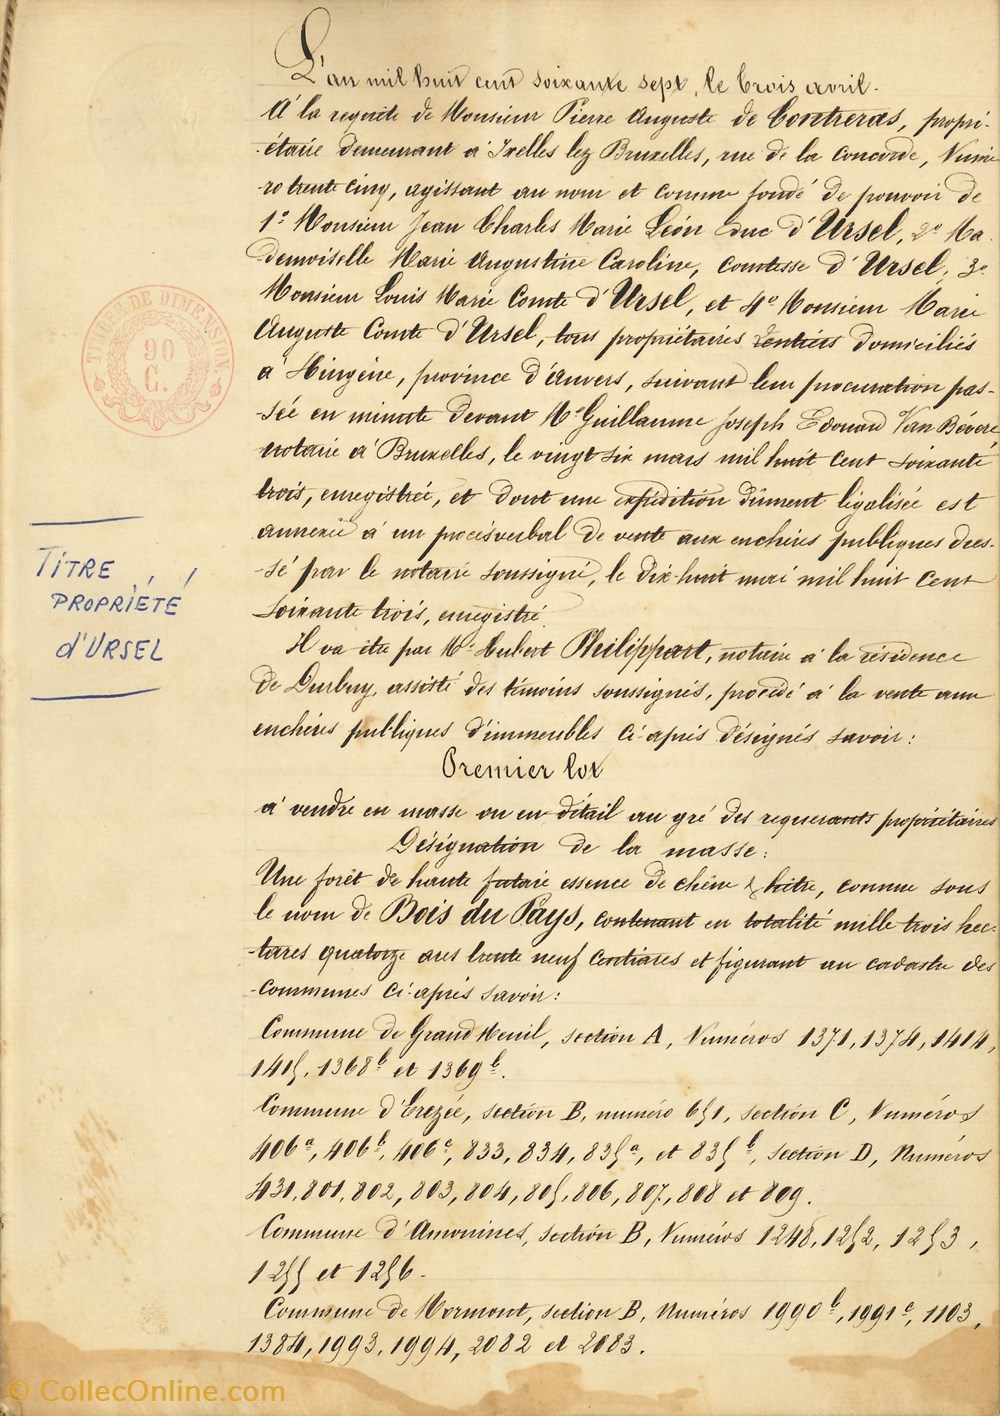 L'an mil huit cent soixante sept, le trois avril.
A la requête de Monsieur Pierre Auguste de Contreras, propri-
-étaire demeurant à Ixelles lez Bruxelles, rue de la Concorde, Numé
-ro trente cinq, agissant au nom et comme fondé de pouvoir de
1° Monsieur Jean Charles Marie Léon Duc d'Ursel, 2° Ma-
demoiselle Marie Augustine Caroline, Comtesse d'Ursel, 3°
Monsieur Louis Marie Comte d'Ursel, et 4° Monsieur Marie
Auguste Comte d'Ursel, tous propriétaires rentiers domiciliés
à Hingène, province d'Anvers, suivant leur procuration pas-
-sée en minute devant Me Guillaume Joseph Edouard Van Bévere
notaire à Bruxelles, le vingt six mars mil huit cent soixante
trois, enregistrée, et dont une expédition dûment légalisée est
annexée à un procès verbal de vente aux enchères publiques dres-
-sé par le notaire soussigné, le dix-huit mai mil huit cent
soixante trois, enregistré.
Il va être par Me Hubert Philippart, notaire à la résidence
de Durbuy, assisté des témoins soussignés, procédé à la vente aux
enchères publiques d'immeubles ci-après désignés savoir:
Premier lot
à vendre en masse ou en détail au gré des requerants propriétaires
Désignation de la masse:
Une forêt de haute futaie essence de chêne & hêtre, connue sous
le nom de Bois du Pays, contenant en totalité mille trois hec-
-tares quatorze ares trente neuf centiares et figurant au cadastre des
-communes ci-après savoir:
Commune de Grand Menil, section A, Numéros 1371, 1374, 1414,
1415, 1368b et 1369b.
Commune d'Erezée, section B, numéro 651, section C, Numéros
406a, 406b, 406c, 833, 834, 835a, et 835b, section D, Numéros
431, 801, 802, 803, 804, 805, 806, 807, 808 et 809.
Commune d'Amonines, section B, Numéros 1248, 1252, 1253,
1255 et 1256.
Commune de Mormont, section B, Numéros 1990b, 1991c, 1103,
1384, 1993, 1994, 2082 et 2083.
TIMBRE DE DIMENSION
90
G.
TITRE
PROPRIÉTÉ
d'URSEL
© CollecOnline.com